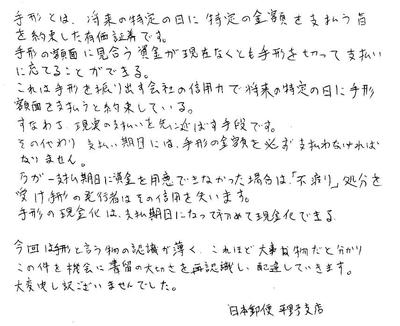 手形とは、将来の特定の日に特定の金額を支払う旨
を約束した有価証券です。
手形の額面に見合う資金が現在なくとも手形を切って支払い
に応てることができる。
これは手形を振り出す会社の信用力で将来の特定の日に手形
額面を支払うと約束している。
すなわち、現実の支払いを先に延ばす手段です。
その代わり 支払い期日には、手形の金額を必ず支払わなければ
なりません。
万が一支払期日に資金を用意できなかった場合は「不渡り」処分を
受け手形の発行者はその信用を失います。
手形の現金化は、支払期日になって初めて現金化できる。
今回は手形と言う物の認識が薄く、これほど大事な物だと分かり
この件を機会に書留の大切さを再認識し、配達していきます。
大変申し訳ございませんでした。
日本郵便 平野支店